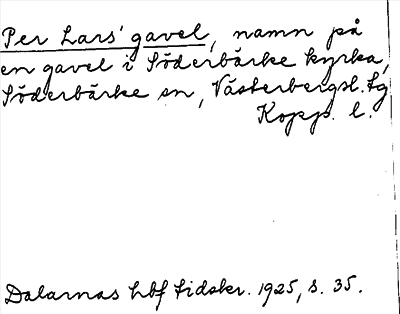 Per Lars' gavel, namn på
en gavel i Söderbärke kyrka,
Söderbärke sn, Västerbergsl. tg
Kopp. l.
Dalarnas hbf tidskr. 1925, s. 35.